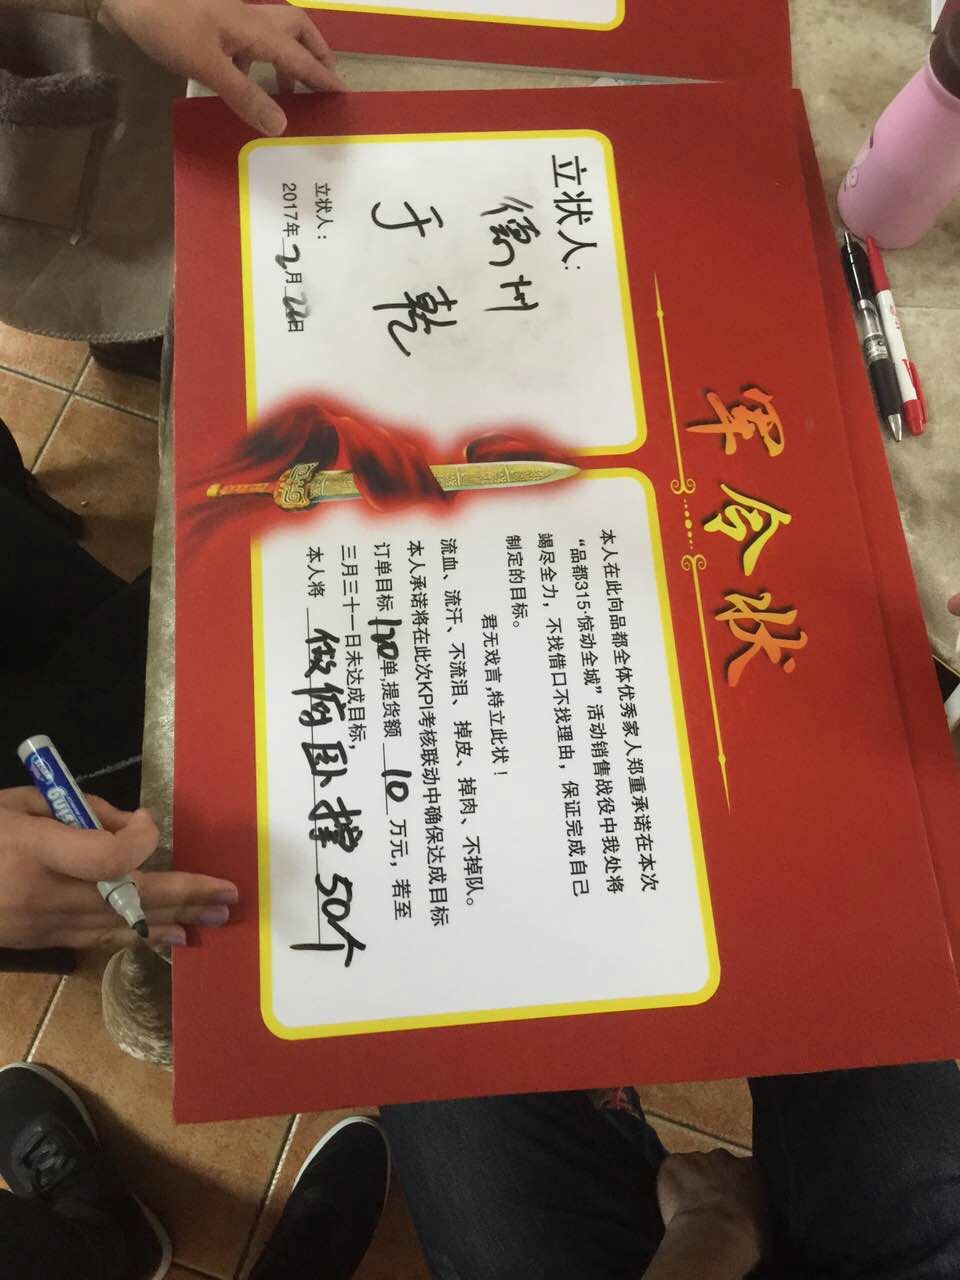 军令状
立状人:
衢州
于乾
立状人:
2017年2月22日
本人在此向品都全体优秀家人郑重承诺在本次
“品都315·惊动全城”活动销售战役中我处将
竭尽全力，不找借口不找理由，保证完成自己
制定的目标。
君无戏言,特立此状！
流血、流汗、不流泪、掉皮、掉肉、不掉队。
本人承诺将在此次KPI考核联动中确保达成目标
订单目标120单,提货额 10 万元，若至
三月三十一日未达成目标，
本人将 做俯卧撑50个